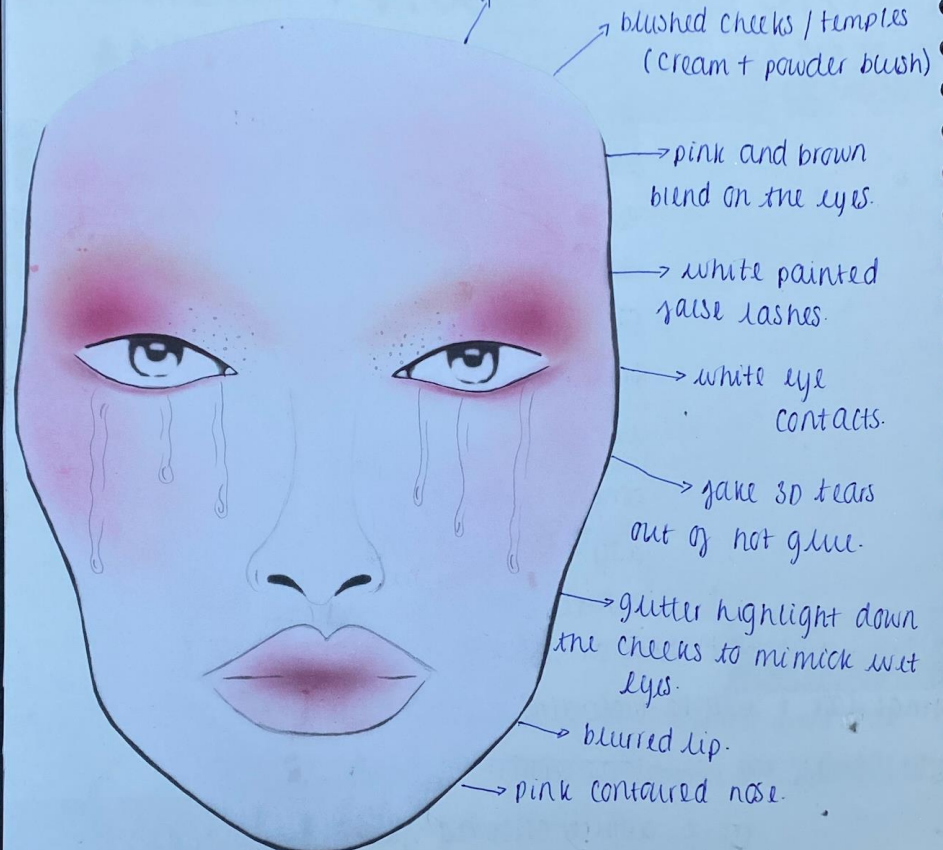 blushed cheeks / temples
(cream + powder blush)
pink and brown
blend on the eyes.
white painted
false lashes.
white eye
contacts.
fake 3D tears
out of hot glue.
glitter highlight down
the cheeks to mimick wet
eyes.
blurred lip.
pink contoured nose.